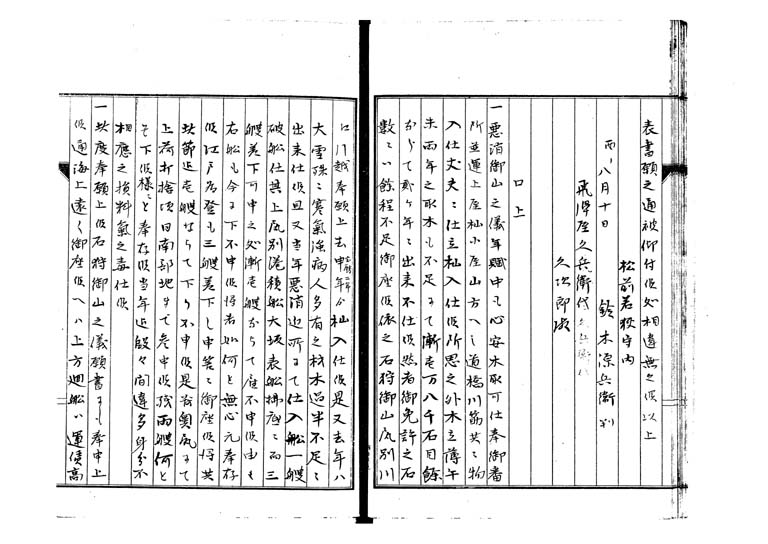 表書願之通被仰付候処相違無之候以上
松前若狭守内
丙八月十日 鈴木凉兵衛判
飛騨屋久兵衛代
久次郎殿
口上
一悪消御山之儀年賦中ニ心安木取可仕奉御番
所並運上屋杣小屋山方へ之道橋川筋共ニ物
入仕丈夫ニ仕立杣入仕候所思之外木立薄午
未両年之取木も不足ニて漸壱万八千石目余
ならて弐ケ年ニ出来不仕候然者御免許之石
数ニハ余程不足御座候依之石狩御山凬別川
口川越奉願上去申年分杣入仕候是又去年ハ
大雪殊ニ寒気強病人多有之材木過半不足ニ
出来仕候且又当年悪消迄所ニて仕入船一艘
破船仕其上凬別港積船大坂表船払底ニ而三
艘差下可申之処漸壱艘ならて居不申候由も
右船も今ニ下不申候得者如何と無心元奉存
候江戸為登も三艘差下し申筈ニ御座候得共
此節迄壱艘ならて下り不申候是者奥凬ニて
上荷打捨候由南部地まて参申候残両艘何と
そ下候様ニと奉存候当年迄段々間違多身分不
相應之損料気之毒仕候
一此度奉願上候石狩御山之儀願書ニも奉申上
候通海上遠く御座候ヘハ上方廻船ハ運賃高